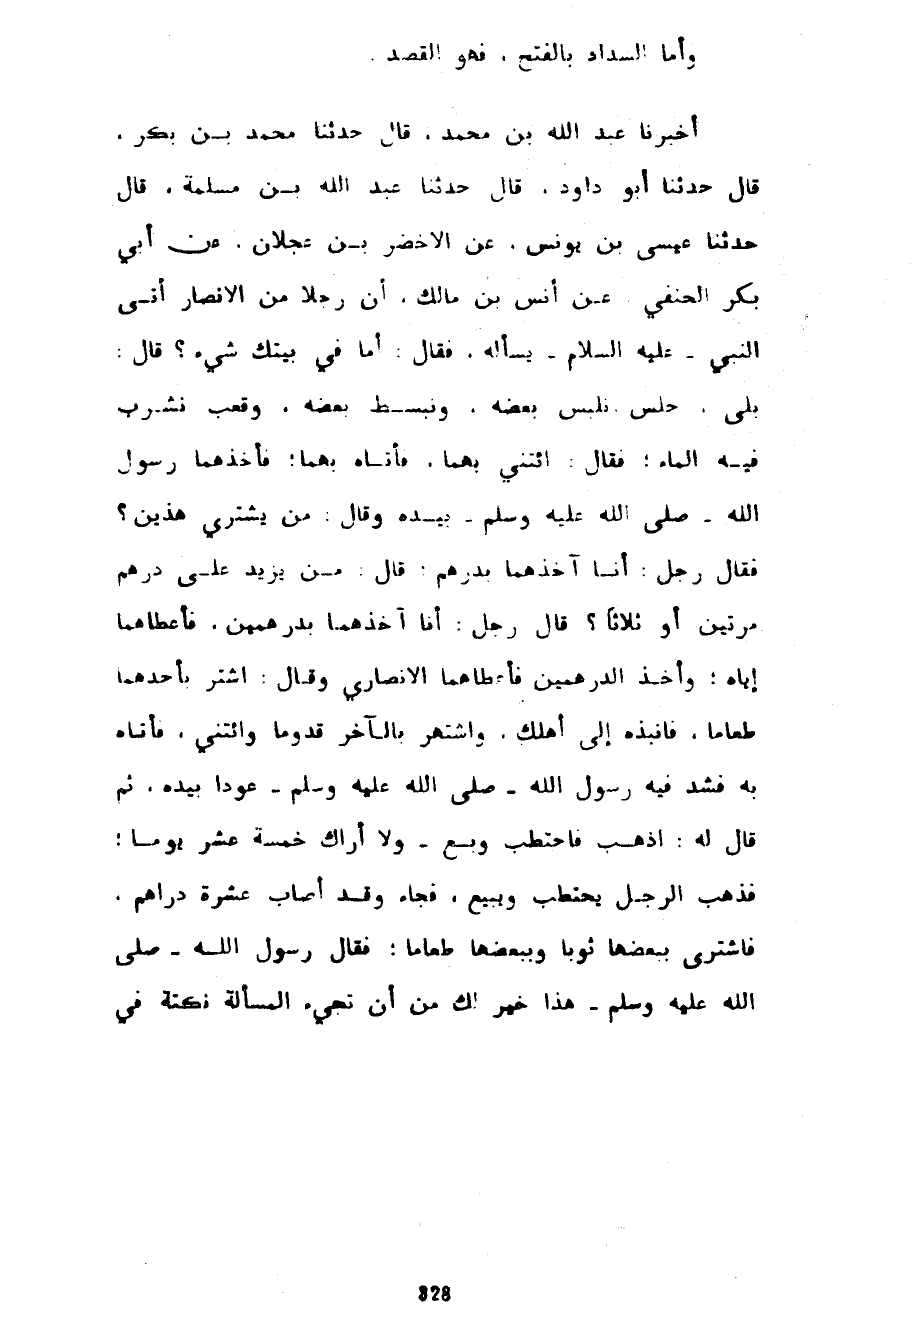 وأما السداد بالفتح ، فهو القصد .
أخبرنا عبد الله بن محمد ، قال حدثنا محمد بن بكر ،
قال حدثنا أبو داود ، قال حدثنا عبد الله بن مسلمة ، قال
حدثنا عيسى بن يونس ، عن الاخضر بن عجلان ، عن أبي
بكر الحنفي عن أنس بن مالك ، أن رجلا من الانصار أتى
النبي - عليه السلام - يسأله ، فقال : أما في بيتك شيء ؟ قال :
بلى ، حلس نلبس بعضه ، ونبسط بعضه ، وقعب نشرب
فيه الماء ؛ فقال : ائتني بهما ، فأتاه بهما ؛ فأخذهما رسول
الله - صلى الله عليه وسلم - بيده وقال : من يشتري هذين ؟
فقال رجل : أنا آخذهما بدرهم : قال : من يزيد على درهم
مرتين أو ثلاثاً ؟ قال رجل : أنا آخذهما بدرهمين ، فأعطاهما
إياه ؛ وأخذ الدرهمين فأعطاهما الانصاري وقال : اشتر بأحدهما
طعاما ، فانبذه إلى أهلك ، واشتهر بالآخر قدوما وائتني ، فأتاه
به فشد فيه رسول الله - صلى الله عليه وسلم - عودا بيده ، ثم
قال له : اذهب فاحتطب وبع - ولا أراك خمسة عشر يوما ؛
فذهب الرجل يحتطب ويبيع ، فجاء وقد أصاب عشرة دراهم ،
فاشترى ببعضها ثوبا وببعضها طعاما ؛ فقال رسول الله - صلى
الله عليه وسلم - هذا خير لك من أن تجيء المسألة نكتة في
328